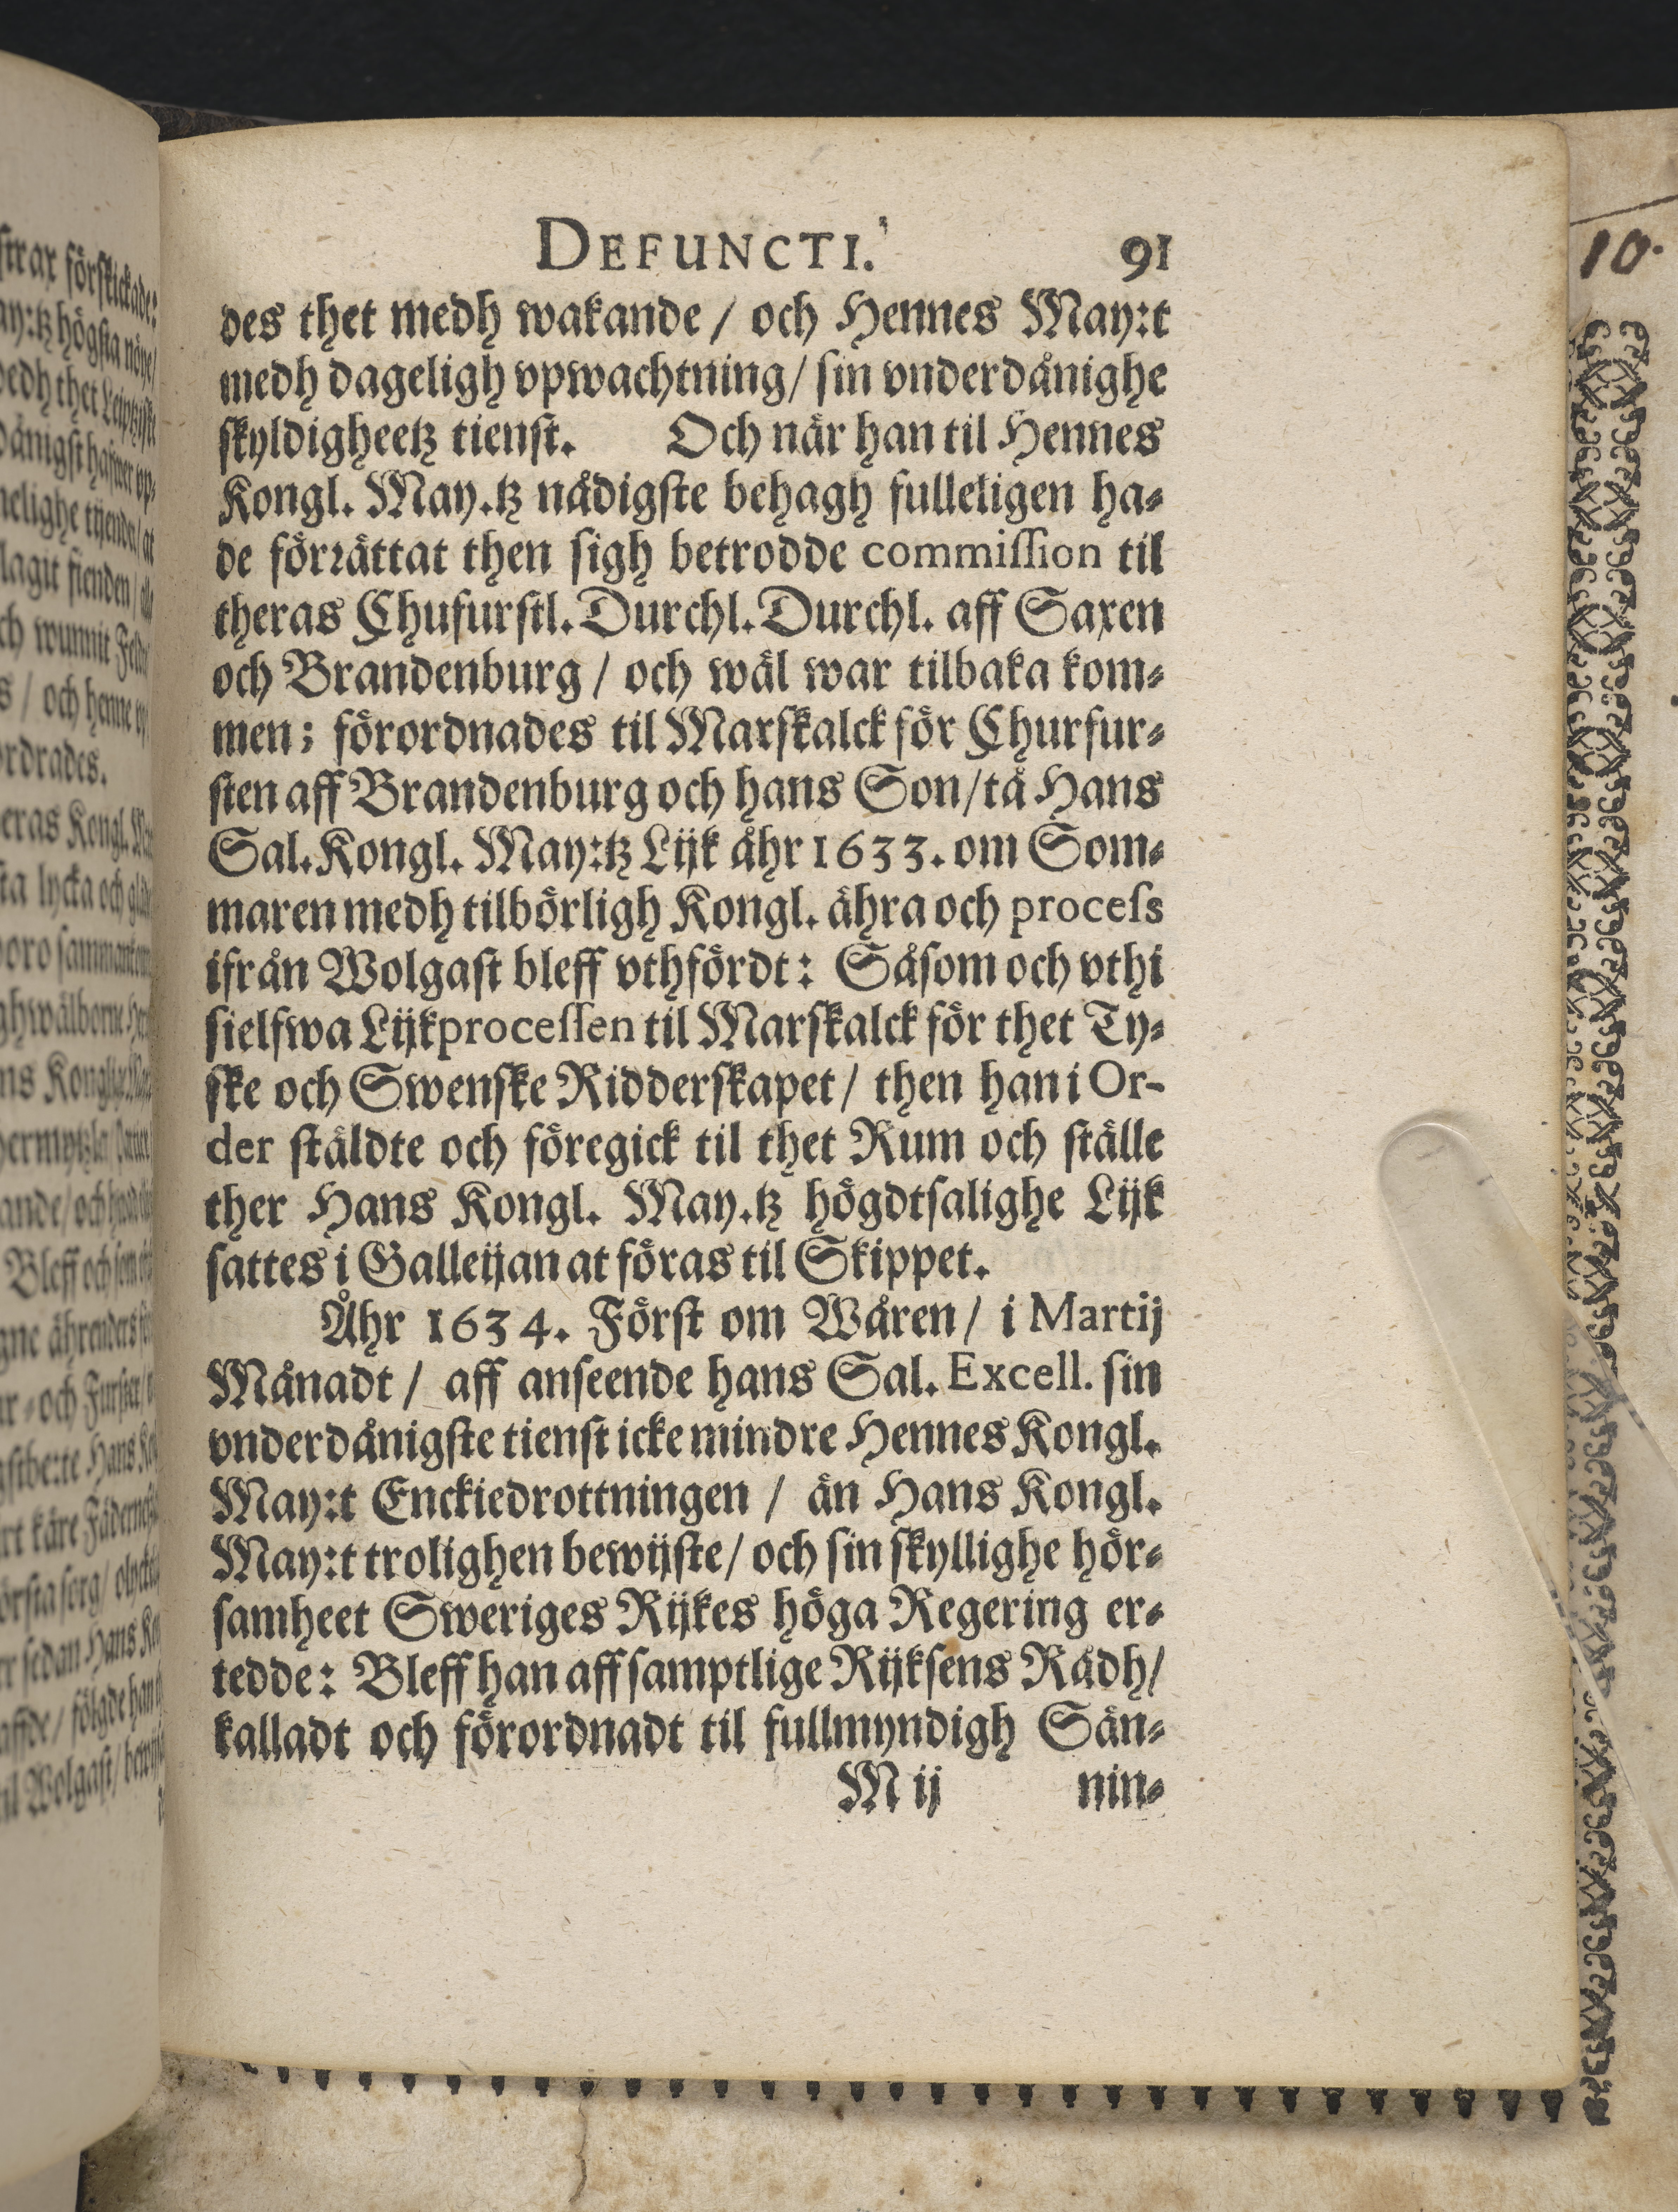 DEFUNCTI. 91
des thet medh wakande / och Hennes May:t
medh dageligh vpwachtning / sin vnderdånighe
skyldigheetz tienst. Och när han til Hennes
Kongl. May.tz nådigste behagh fulleligen ha-
de förrättat then sigh betrodde commission til
theras Chufurstl. Durchl. Durchl. aff Saxen
och Brandenburg / och wäl war tilbaka kom-
men; förordnades til Marskalck för Churfur-
sten aff Brandenburg och hans Son / tå Hans
Sal. Kongl. May:tz Lijk åhr 1633. om Som-
maren medh tilbörligh Kongl. ähra och process
ifrån Wolgast bleff vthfördt: Såsom och vthi
sielfwa Lijkprocessen til Marskalck för thet Ty-
ske och Swenske Ridderskapet / then han i Or-
der stäldte och föregick til thet Rum och ställe
ther Hans Kongl. May.tz högdtsalighe Lijk
sattes i Galleijan at föras til Skippet.
Åhr 1634. Först om Wåren / i Martij
Månadt / aff anseende hans Sal. Excell. sin
vnderdånigste tienst icke mindre Hennes Kongl.
May:t Enckiedrottningen / än Hans Kongl.
May:t trolighen bewijste / och sin skyllighe hör-
samheet Sweriges Rijkes höga Regering er-
tedde: Bleff han aff samptlige Rijksens Rådh /
kalladt och förordnadt til fullmyndigh Sän-
M ij nin-
10.